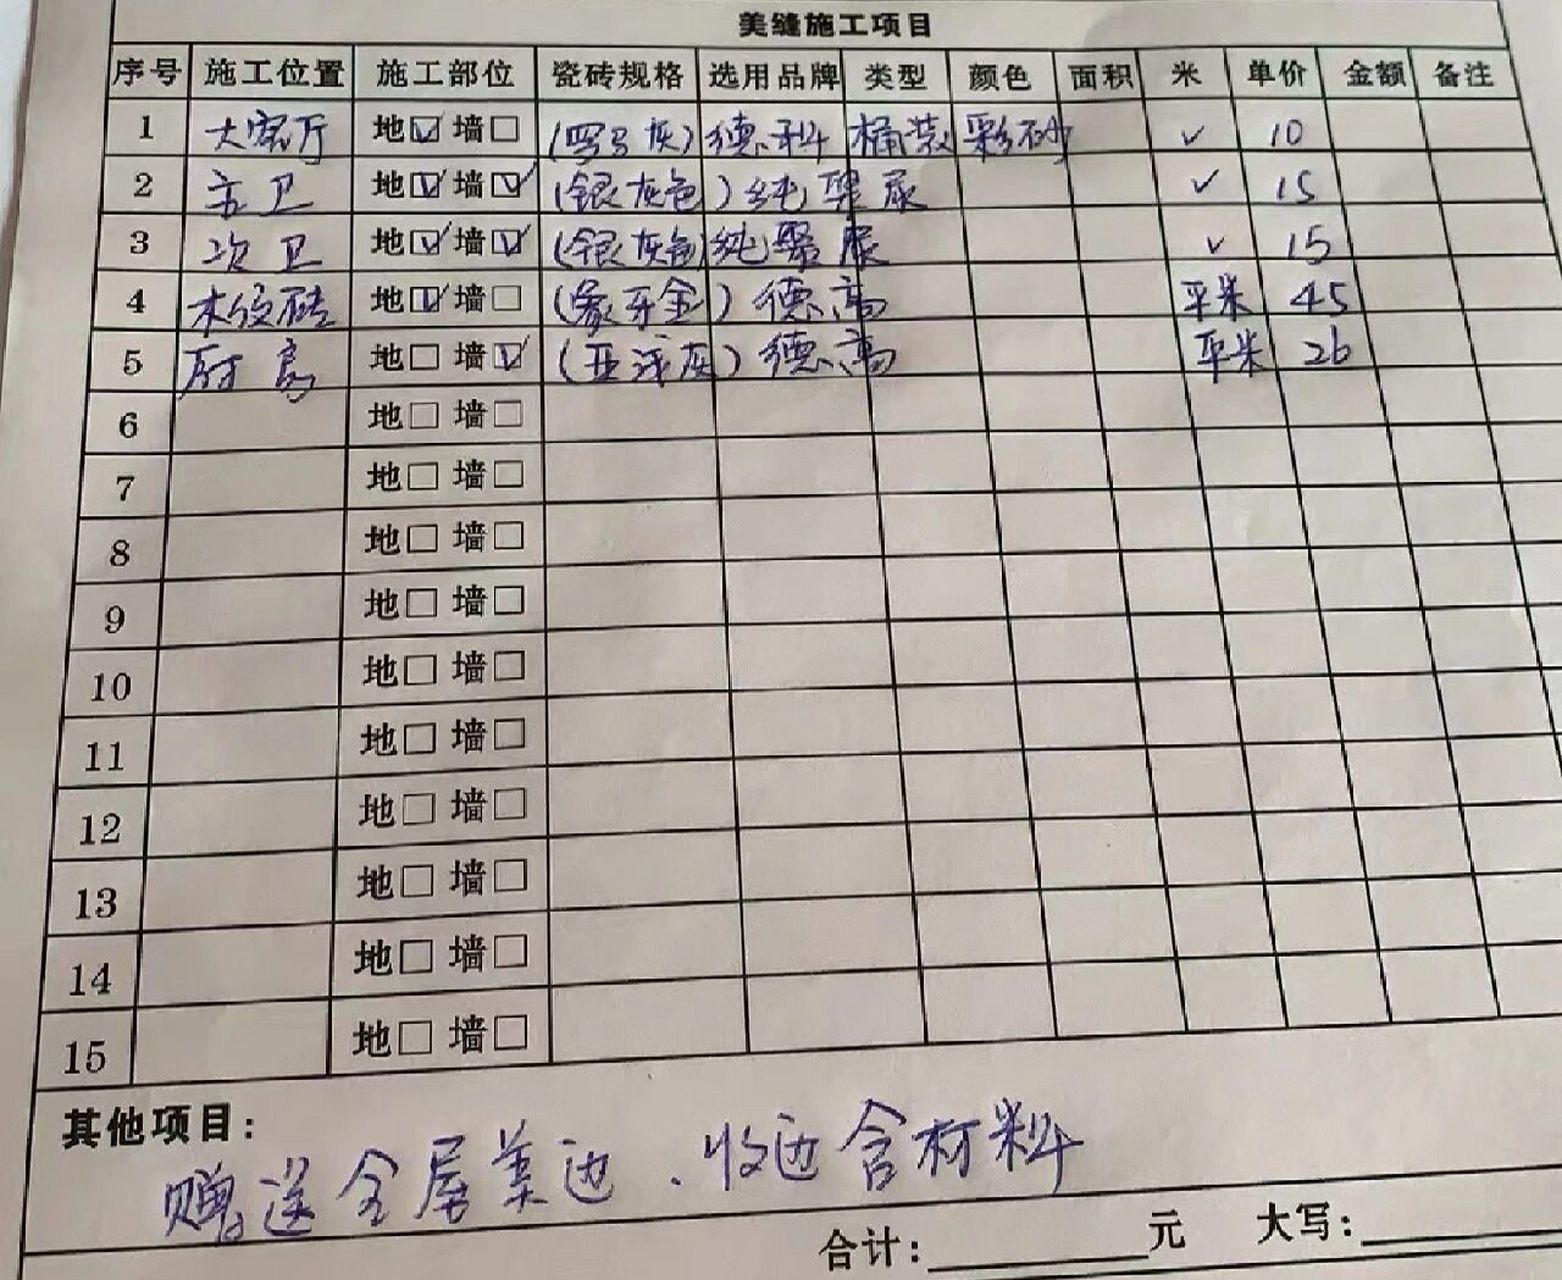 美缝施工项目
序号 施工位置 施工部位 瓷砖规格 选用品牌 类型 颜色 面积 米 单价 金额 备注
1 大客厅 地☑ 墙□ (罗马灰) 德科 桶装 彩砂 ✓ 10
2 主卫 地☑ 墙☑ (银灰色) 纯聚脲 ✓ 15
3 次卫 地☑ 墙☑ (银灰色) 纯聚脲 ✓ 15
4 木纹砖 地☑ 墙□ (象牙金) 德高 平米 45
5 厨房 地□ 墙☑ (亚浅灰) 德高 平米 26
6 地□ 墙□
7 地□ 墙□
8 地□ 墙□
9 地□ 墙□
10 地□ 墙□
11 地□ 墙□
12 地□ 墙□
13 地□ 墙□
14 地□ 墙□
15 地□ 墙□
其他项目:
赠送全屋美边、收边含材料
合计: 元 大写: